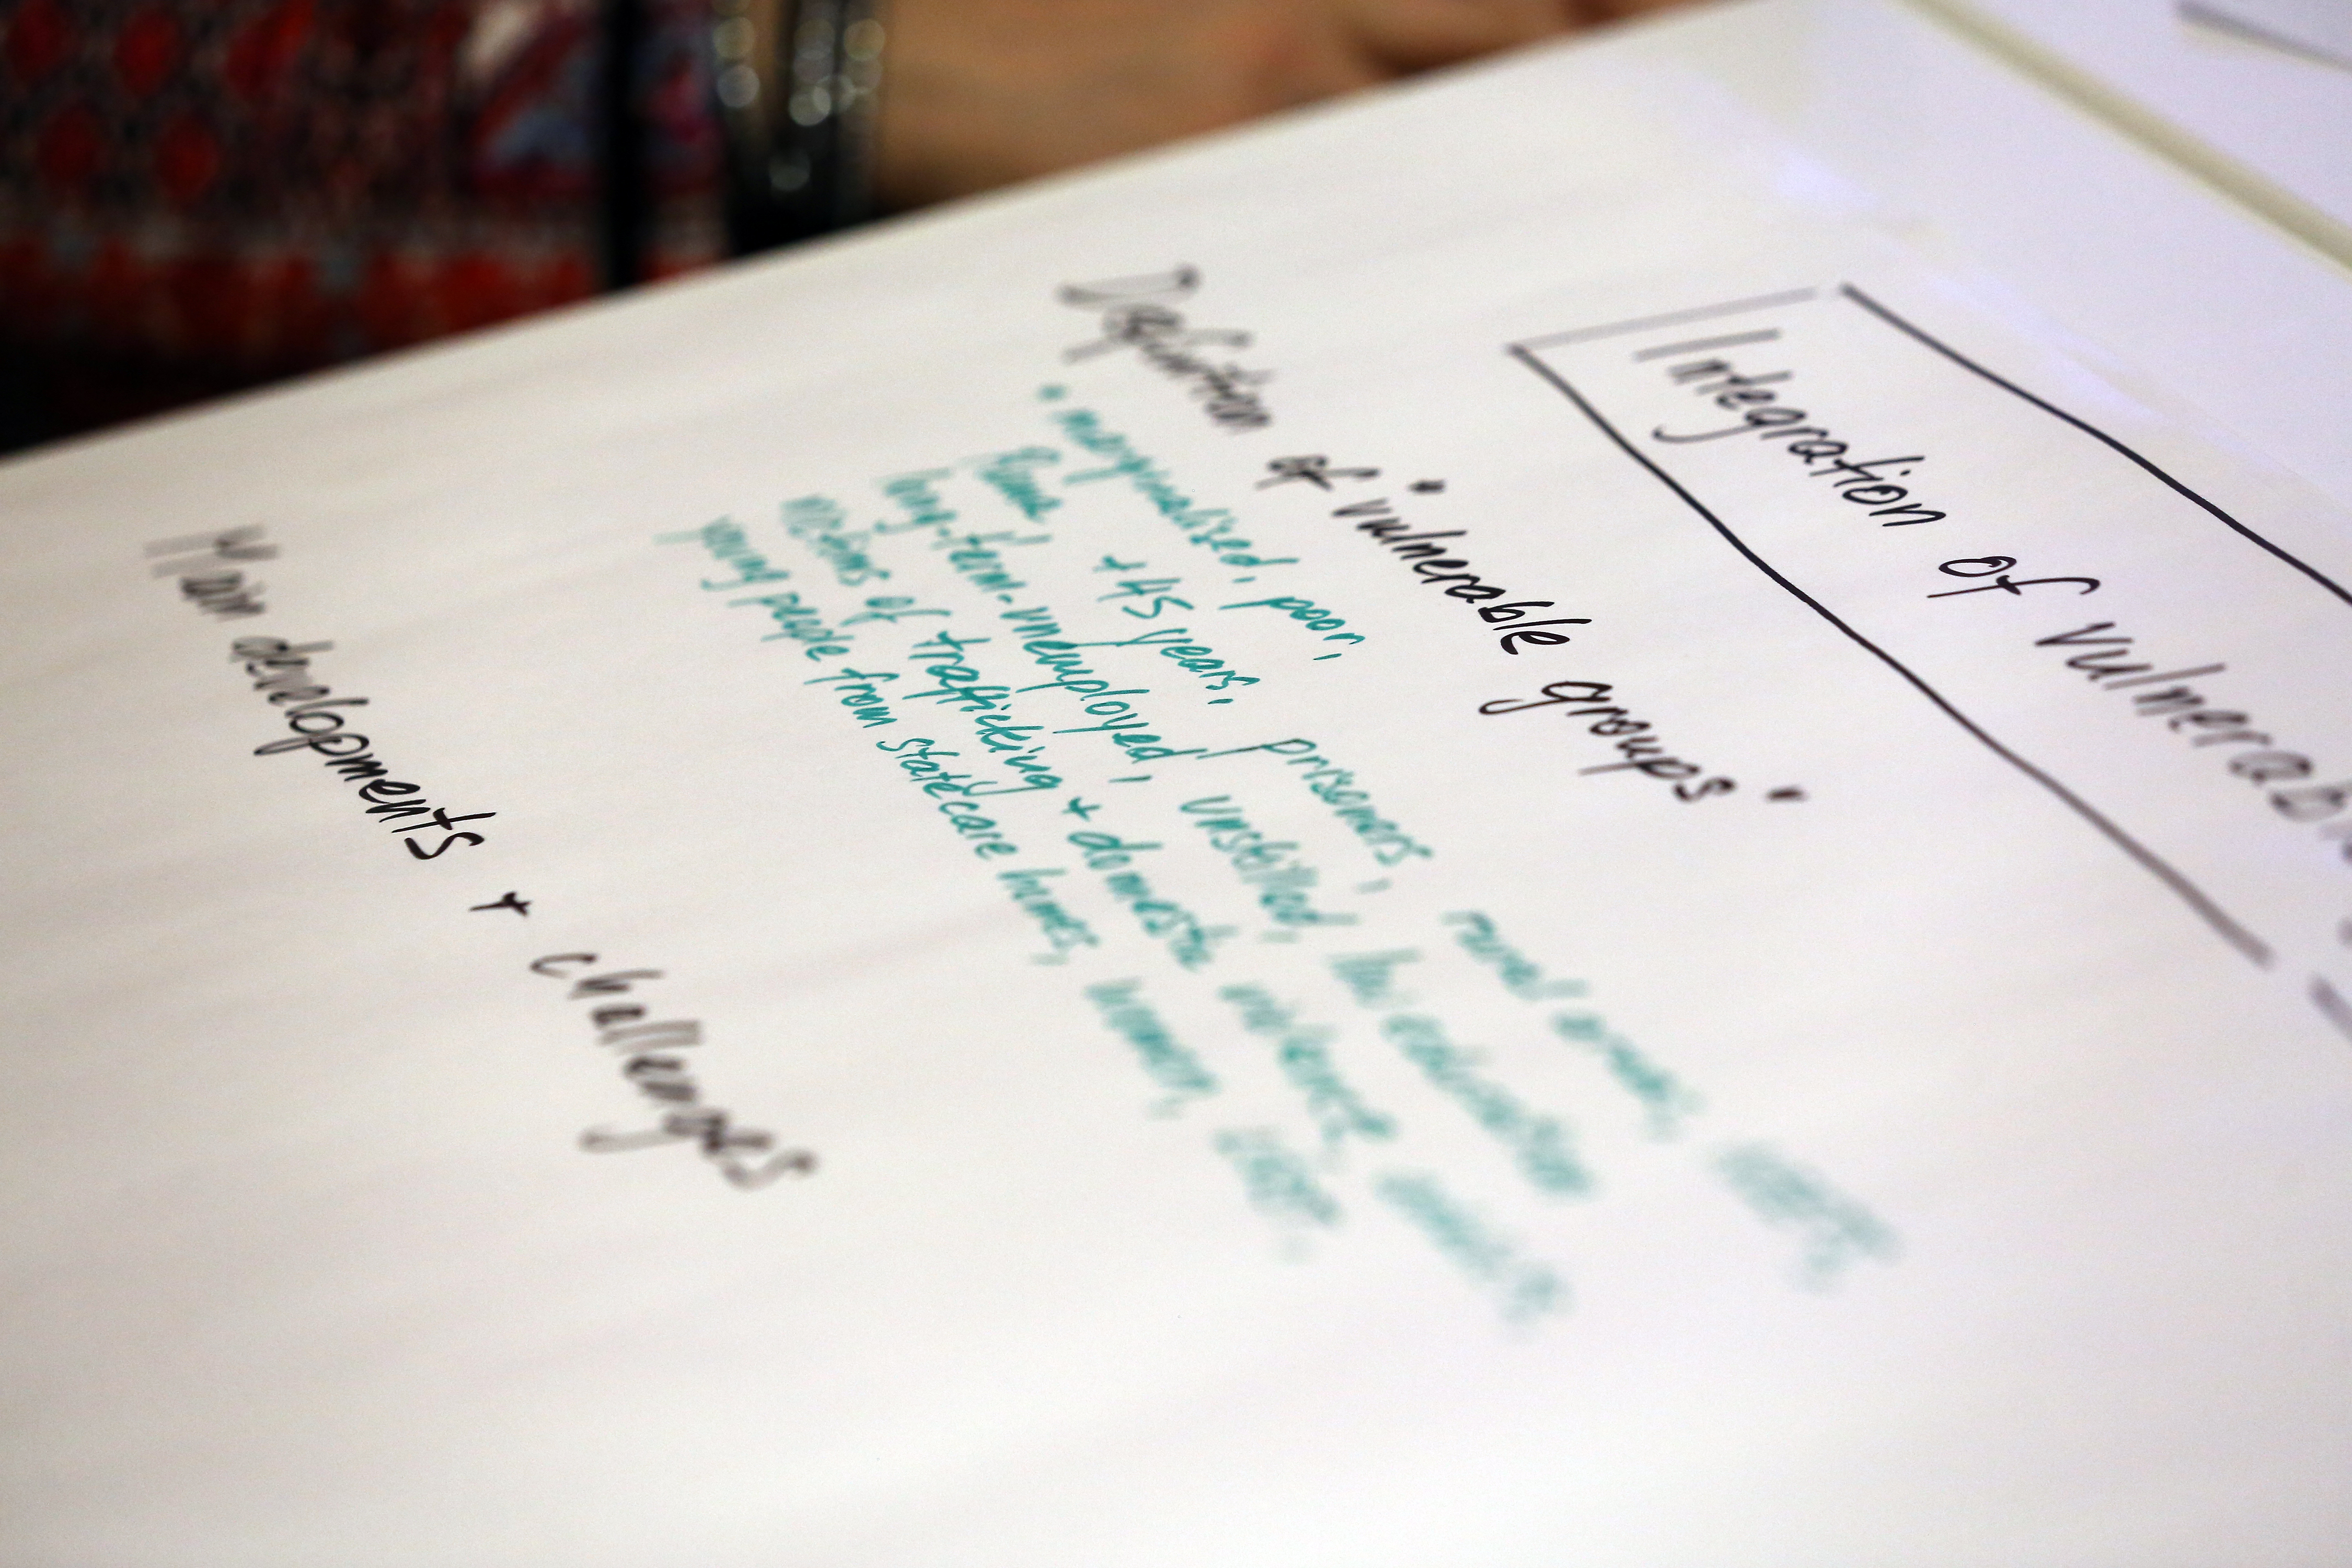 Integration of vulnerab
Definition of "vulnerable groups"
• marginalised, poor,
Roma, +45 years, prisoners, rural areas,
long-term-unemployed, unskilled, low education
victims of trafficking + domestic violence
young people from statecare homes, women,
Main developments + challenges